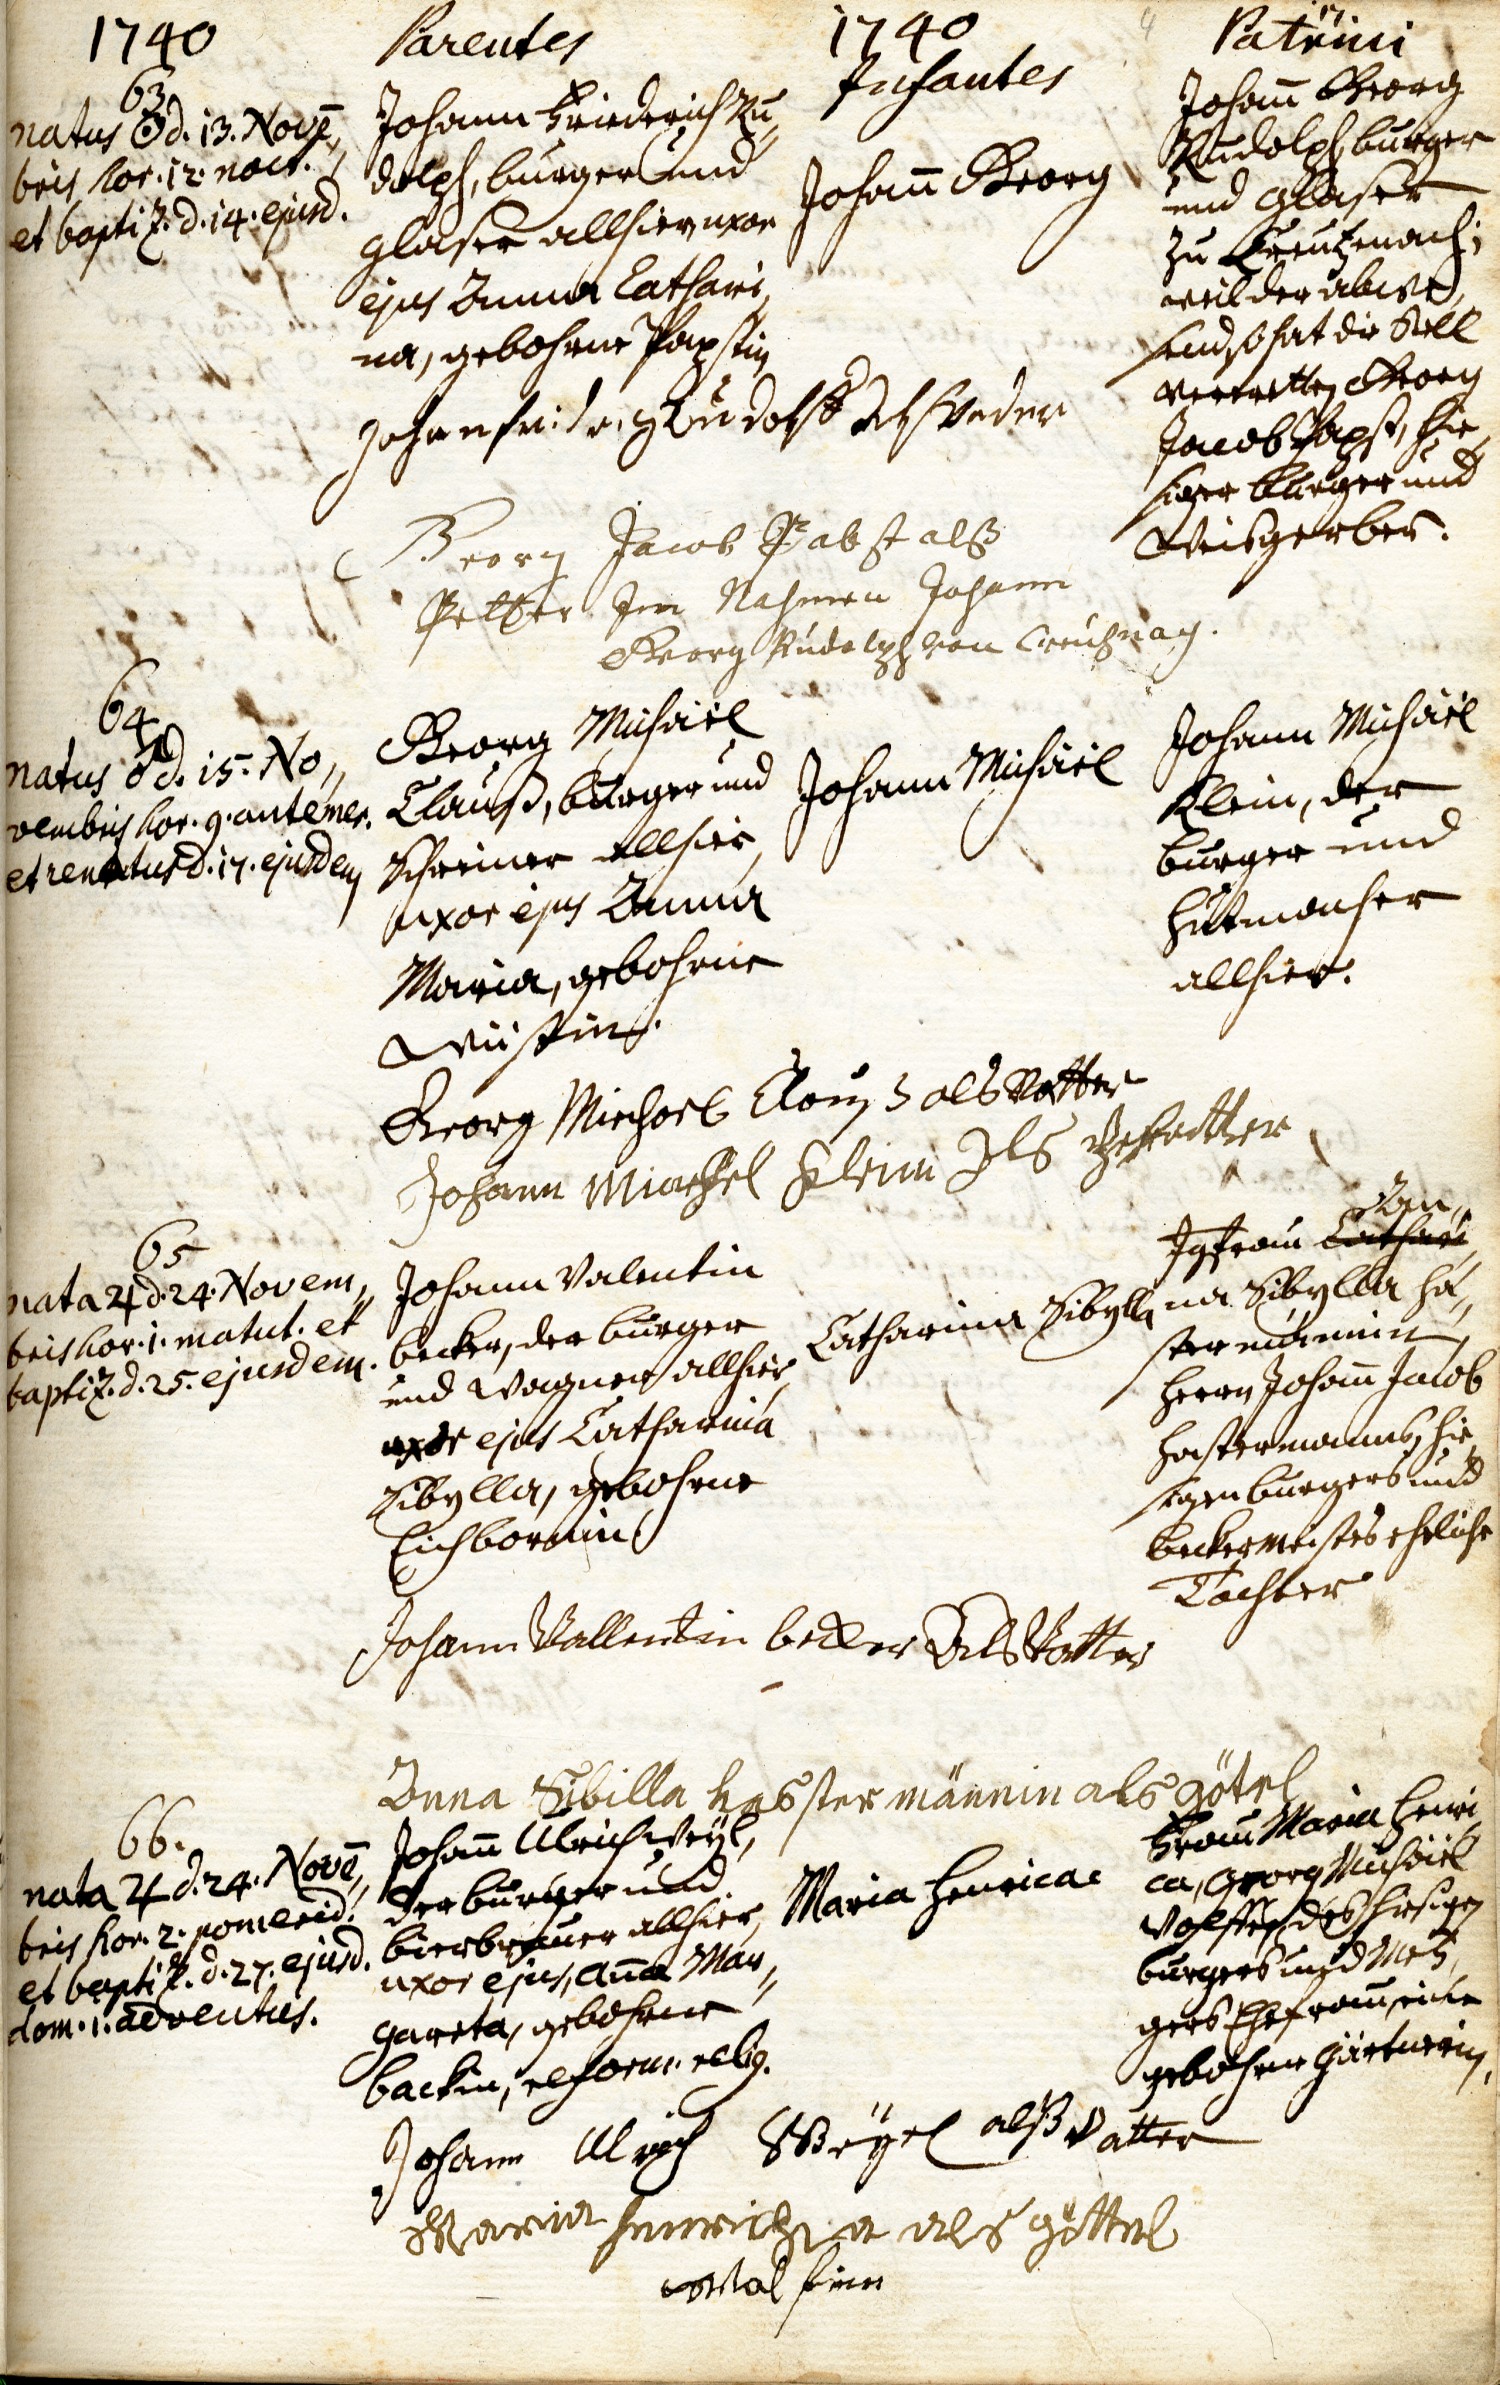 1740
Parentes
1740
Infantes
Patrini
63
natus ☉ d. 13. Novē,,
bris hor. 12. noct.
et baptiz. d. 14. ejusd.
Johann Friederich Ru,,
dolph, burger und
glaser allhier, uxor
ejus Anna Cathari,,
na, gebohrne Papstin
Johann Georg
Johann Georg
Rudolph, burger
und glaser
zu Kreutznach;
weil der abwe,,
send, so hat die Stell
vertretten Georg
Jacob Papst, hie,,
siger burger und
Weisgerber.
Rudolff als Vader
Georg Jacob Pabst alß
Petter Im Nahmen Johann
Georg Rudolph von Creutznach.
64
natus ♂ d. 15. No,,
vembris hor. 9. antemer.
et renatus d. 17. ejusdem
Georg Michäel
Clauß, burger und
Schreiner allhier,
uxor ejus Anna
Maria, gebohrne
Wüstin.
Johann Michäel
Johann Michäel
Klein, der
burger und
Hutmacher
allhier.
Georg Michael Clauß als Vatter
Johann Michel Klein Als Gefatter
65
nata ♃ d. 24. Novem,,
bris hor. 1. matut. et
baptiz. d. 25. ejusdem.
Johann Valentin
becker, der burger
und Wagner allhier,
uxor ejus Catharina
Sibylla, gebohrne
Eichbornin
Catharina Sibylla
An,,
Jgfrau Cathari,,
na Sibylla Ha,,
stermännin,
Herrn Johann Jacob
Hastermanns, hie,,
sigen burgers und
beckermeisters eheliche
Tochter
Johann Vallentin becker Als Vatter
Anna Sibilla hasstermännin als götel
66.
nata ♃ d. 24. Novē,,
bris hor. 2. pomerid.
et baptiz. d. 27. ejusd.
dom. 1. adventus.
Johann Ulrich Weyl,
der burger und
bierbrauer allhier,
uxor ejus, Anna Mar,,
gareta, gebohrne
backin, reform. relig.
Maria Henrica
Frau Maria Henri,,
ca, Georg Michäel
Wolffen, des hiesigen
burgers und Metz,,
gers Ehefrau, eine
gebohrne Gärtnerin.
Johann Ulrich Weyel alß Vatter
Maria als göttel